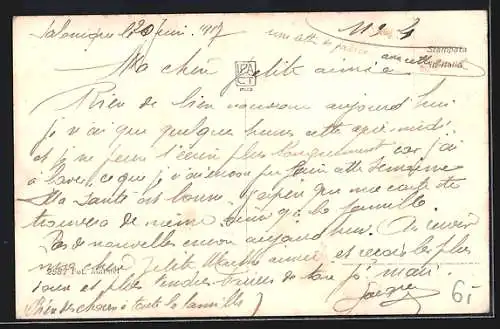 Salonique le 20 Juin 1917
Stampata
in Italia
Ma chère petite aimée
Rien de bien nouveau aujourd hui
je n'ai que quelques heures cette après midi
et je ne peux t'écrire plus longuement car j'ai
à laver, ce que je n'ai encore pu faire cette semaine
Ma Santé est bonne, j'espère que ma carte te
trouvera de même ainsi que la famille.
Pas de nouvelles encore aujourd hui. Au revoir
ma chère petite aimée et reçois les plus
doux et plus tendres baisers de ton p'i mari
Bien des choses à toute la famille
6,-